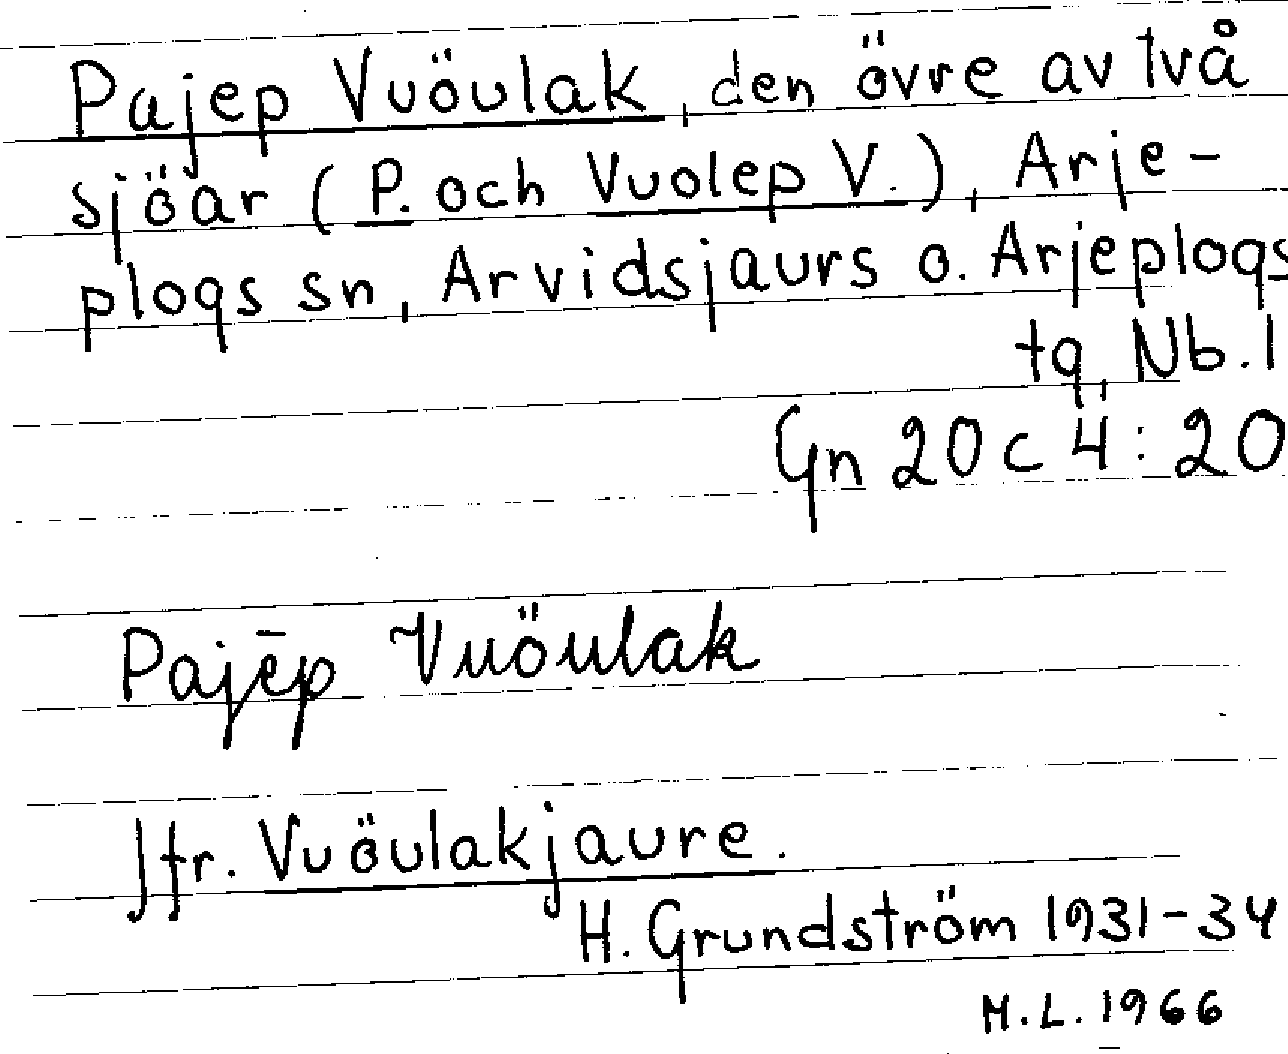 Pajep Vuöulak, den övre av två
sjöar (P. och Vuolep V.), Arje-
plogs sn, Arvidsjaurs o. Arjeplogs
tg, Nb. l
Gn 20 c 4:20
Pajēp Vuöulak
Jfr. Vuöulakjaure.
H. Grundström 1931-34
M.L. 1966